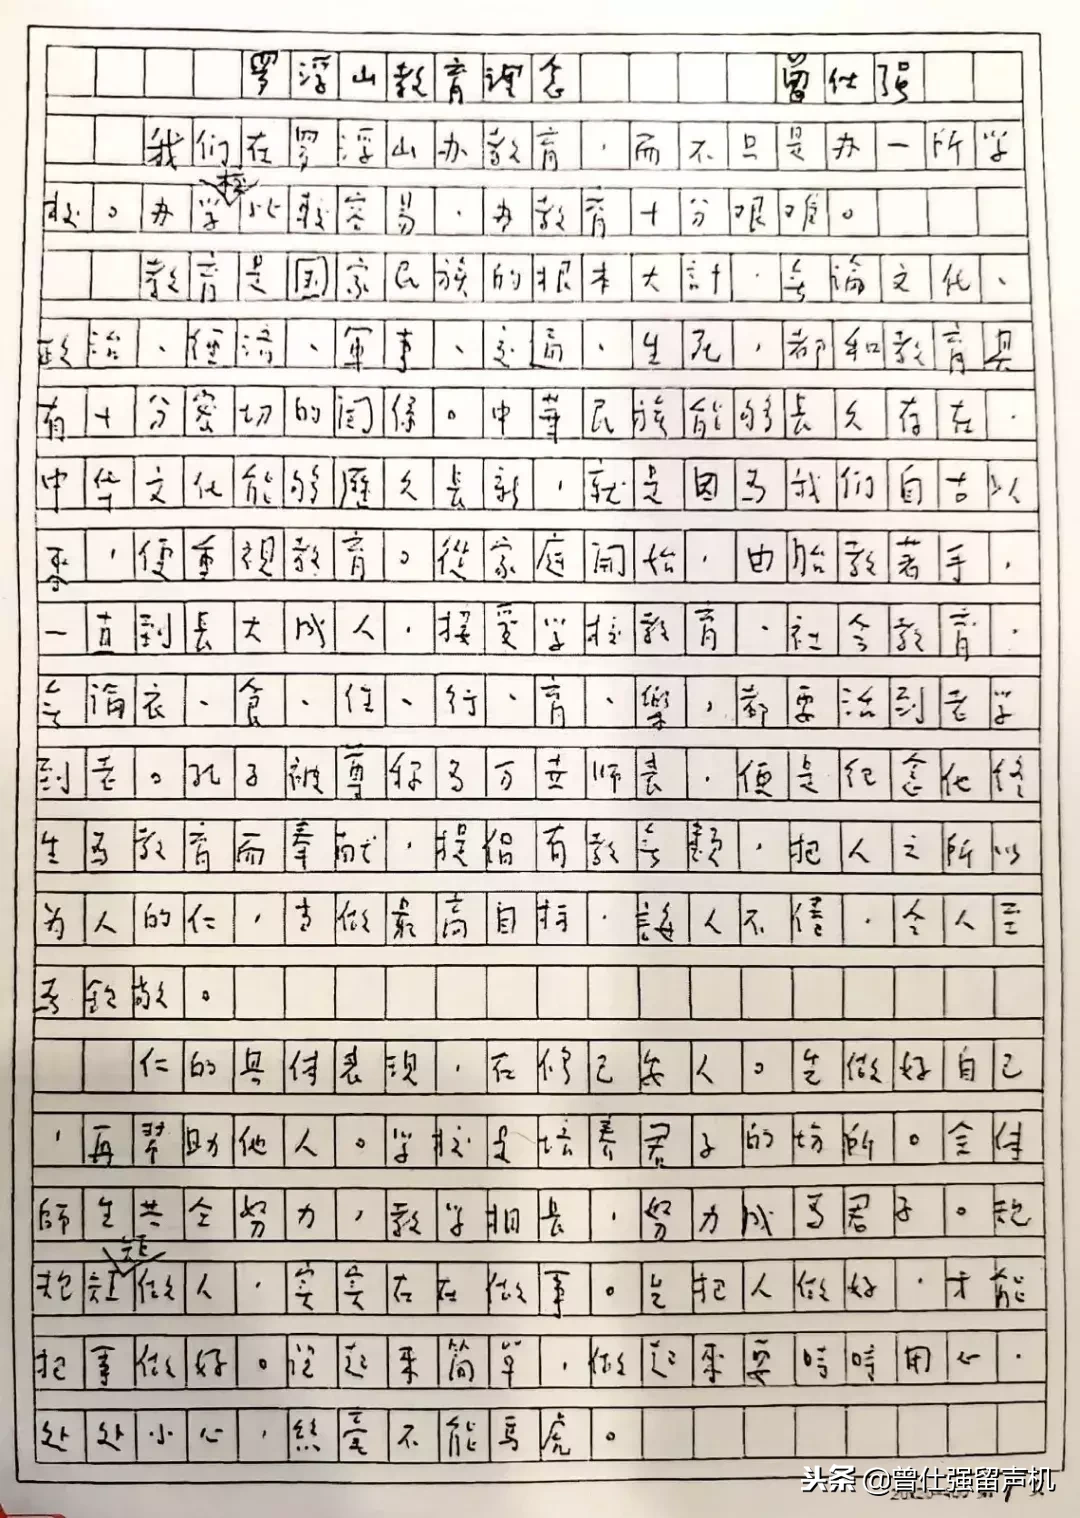 罗浮山教育理念 曾仕强
我们在罗浮山办教育，而不只是办一所学
校。办学校比较容易，办教育十分艰难。
教育是国家民族的根本大計，無論文化、
政治、經濟、軍事、交通、生死，都和教育具
有十分密切的関係。中華民族能够長久存在，
中华文化能够歷久長新，就是因為我们自古以
來，便重視教育。從家庭開始，由胎教著手，
一直到長大成人，接受学校教育、社会教育，
無論衣、食、住、行、育、樂，都要活到老学
到老。孔子被尊称為万世师表，便是纪念他终
生為教育而奉献，提倡有教無類，把人之所以
为人的仁，当做最高目标，誨人不倦，令人至
為欽敬。
仁的具体表現，在修己安人。先做好自己
，再帮助他人。学校是培养君子的場所。全体
師生共全努力，教学相長，努力成為君子。规
规矩矩做人，实实在在做事。先把人做好，才能
把事做好。说起来简单，做起来要時時用心，
处处小心，絲毫不能馬虎。
头条 @曾仕强留声机